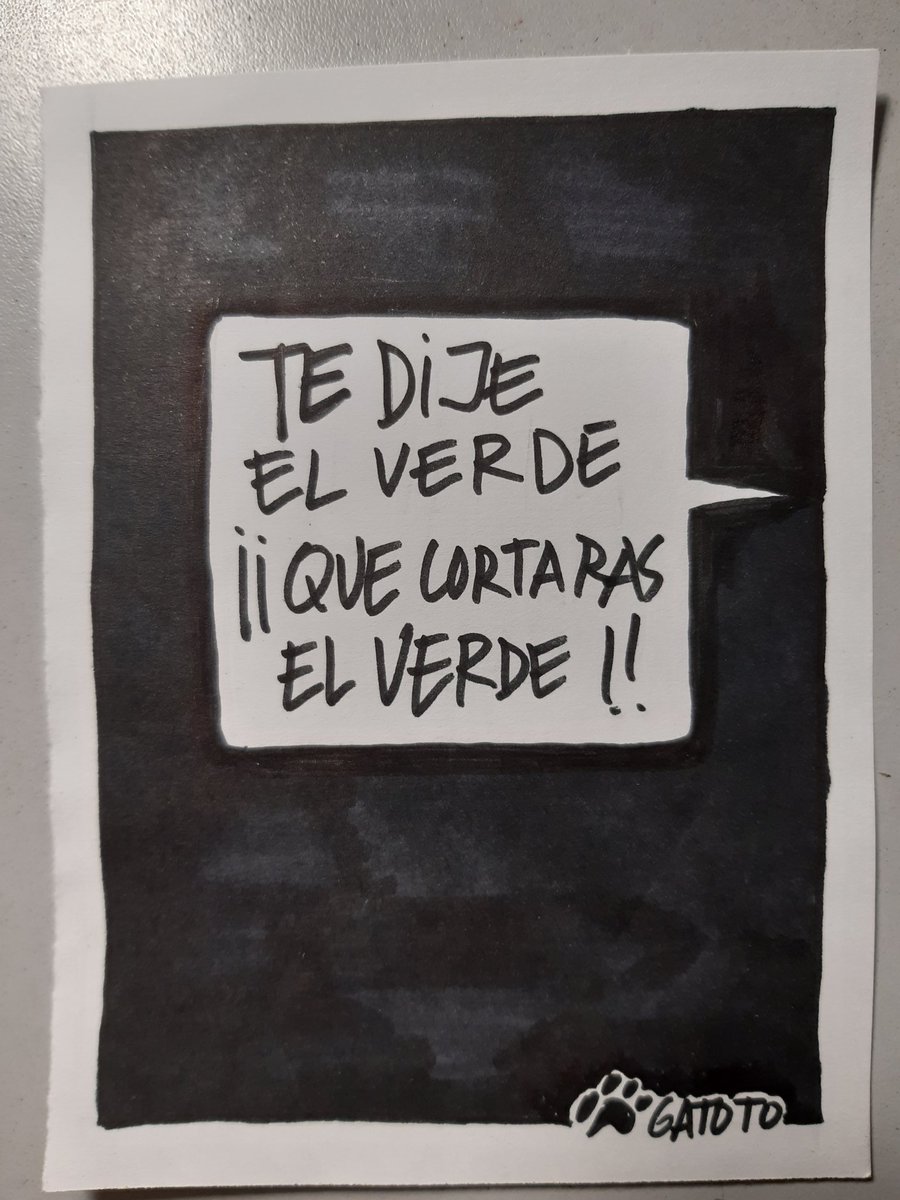 TE DIJE
EL VERDE
¡¡QUE CORTARAS
EL VERDE!!
GATOTO